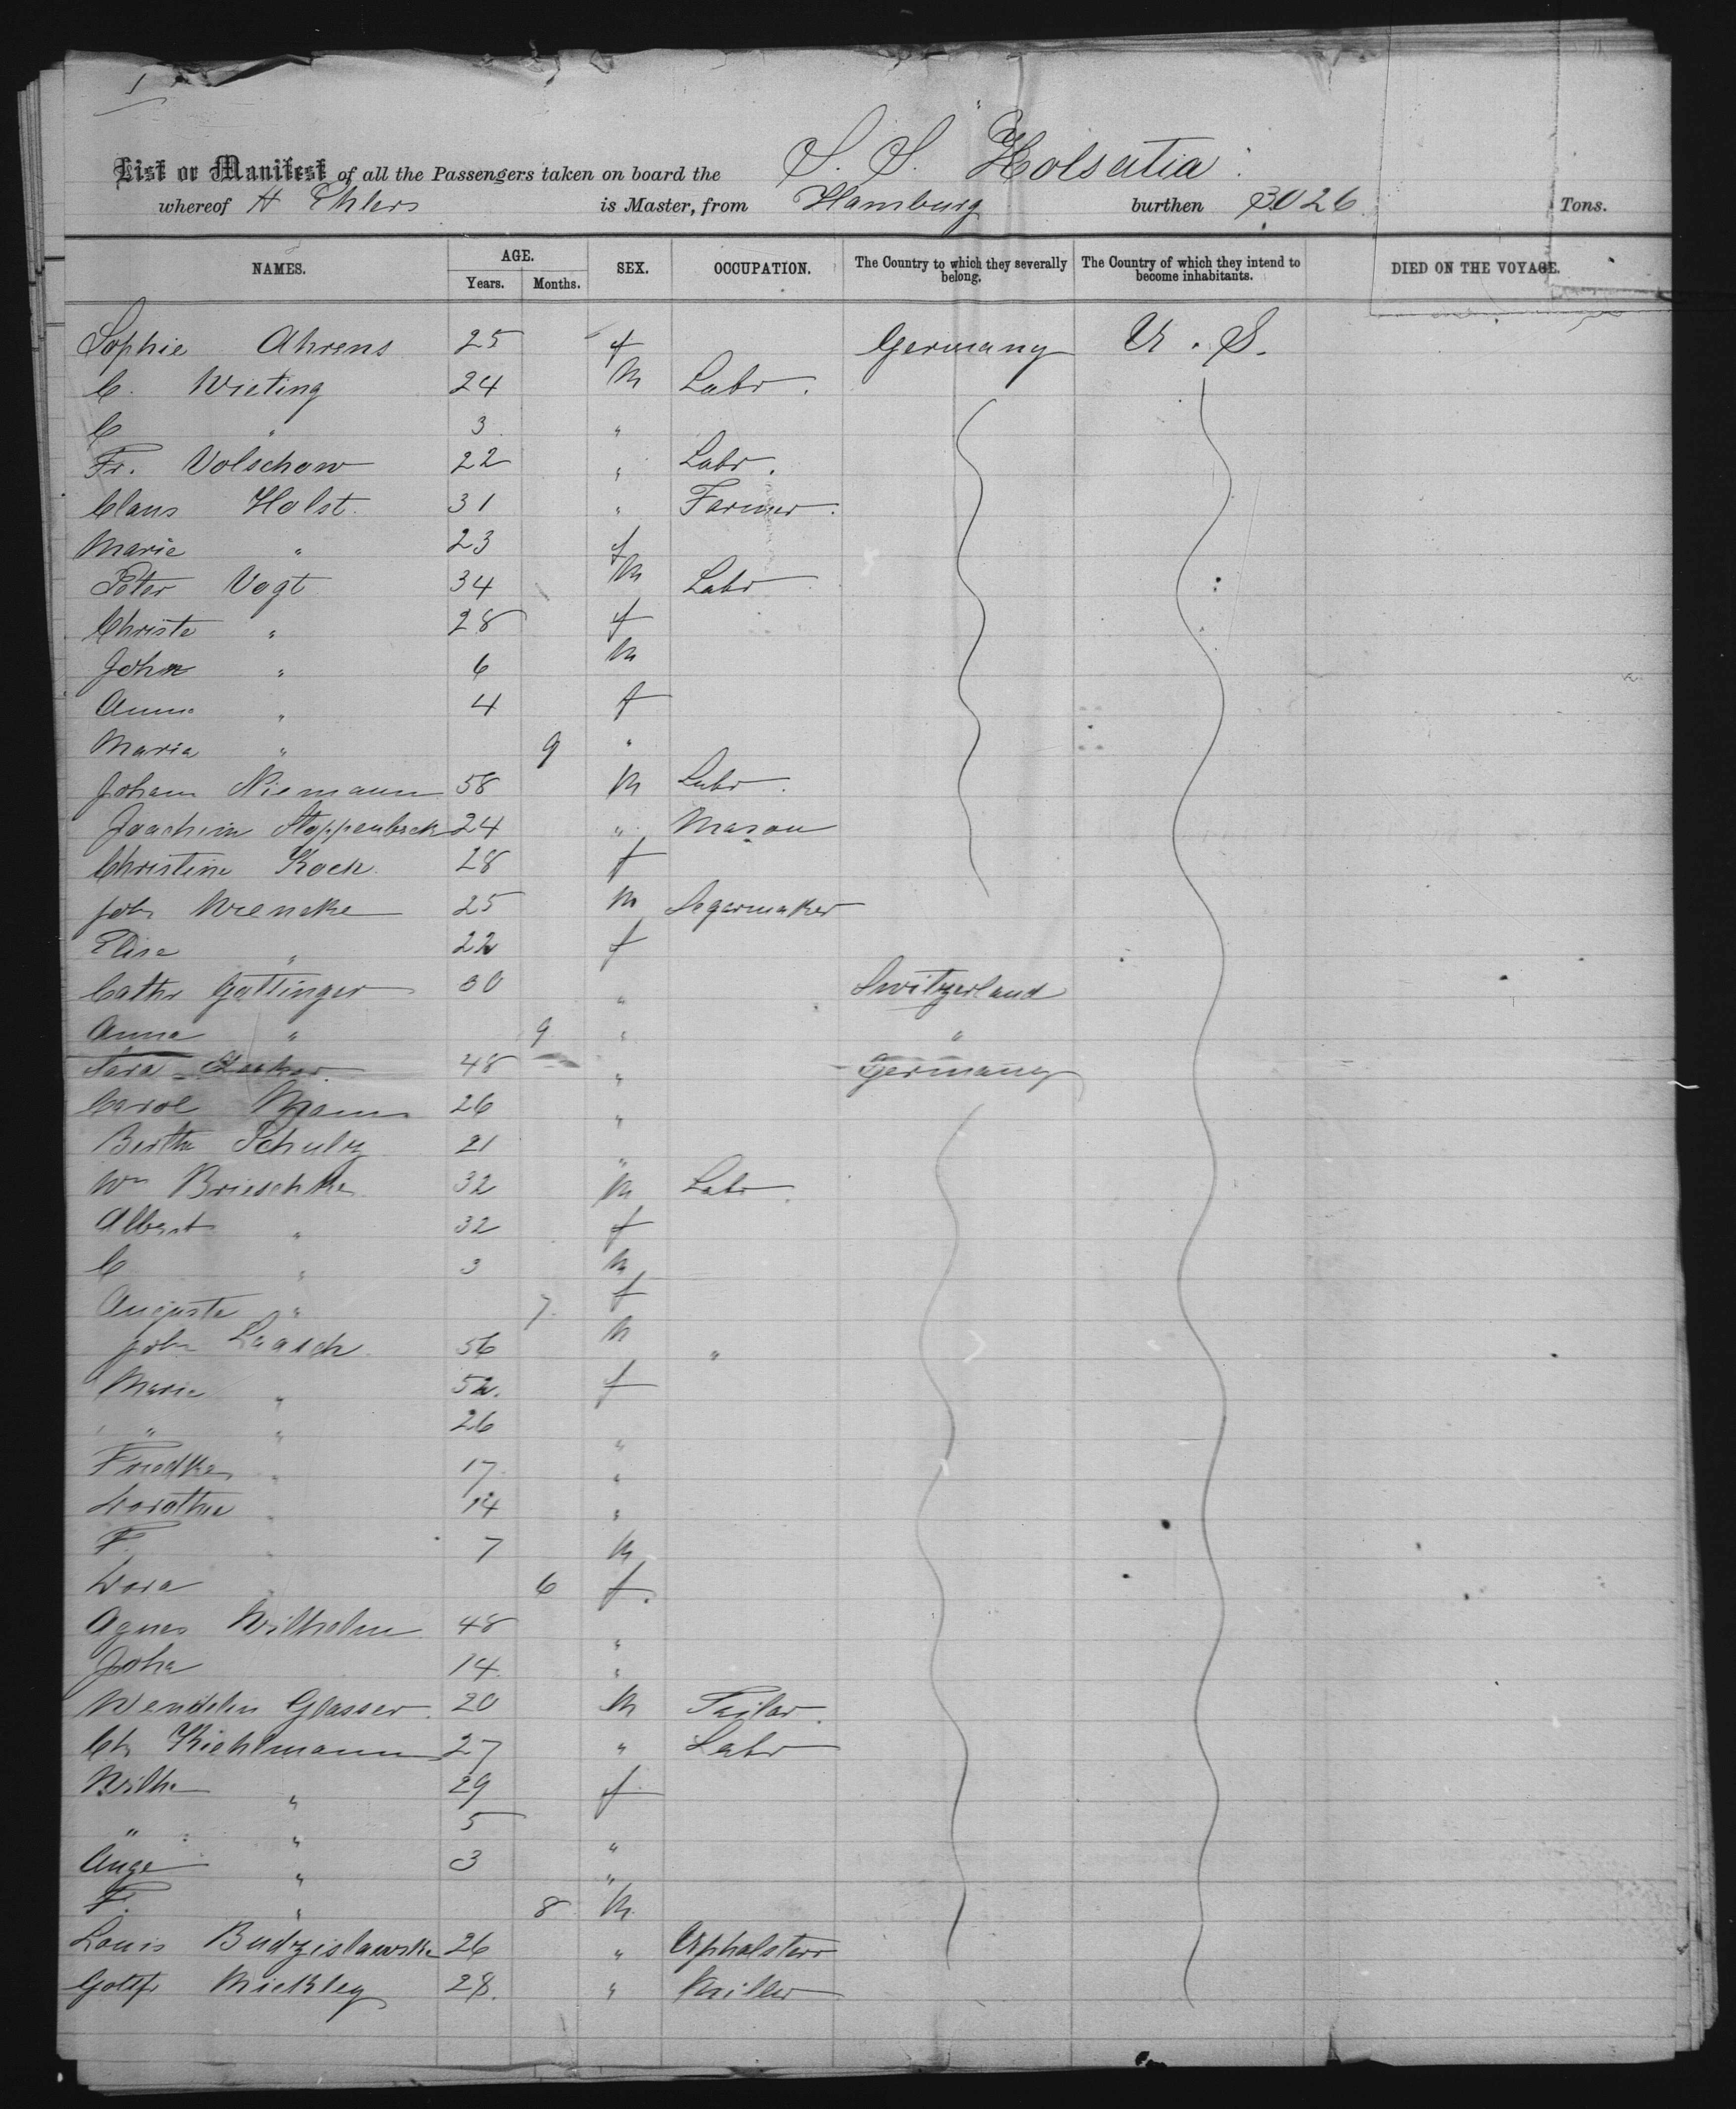 List or Manifest of all the Passengers taken on board the S. S. Holsatia
whereof H Ehlers is Master, from Hamburg burthen 3026 Tons.
NAMES. AGE. Years. Months. SEX. OCCUPATION. The Country to which they severally belong. The Country of which they intend to become inhabitants. DIED ON THE VOYAGE.
Sophie Ahrens 25 f Germany U. S.
C. Wieting 24 M Labr.
C " 3 "
Fr. Volschow 22 " Labr.
Claus Holst 31 " Farmer.
Marie " 23 f
Peter Vogt 34 M Labr
Christe " 28 f
John " 6 M
Anna " 4 f
Maria " 9 "
Johann Niemann 58 M Labr.
Joachim Stoppenbrck 24 " Mason
Christine Kock 28 f
Joh Wiencke 25 M Segarmaker
Elise " 22 f
Cathr Gottinger 30 " Switzerland
Anna " 9 " "
48 " Germany
Carol Mann 26 "
Berth Schulz 21 "
Wm Brieschke 32 M Labr.
Albert " 32 f
C " 3 M
Auguste " 7 f
Joh Laasch 56 M "
Marie " 52. f
" " 26 "
Friedke " 17 "
Dorothea " 14 "
F. " 7 M
Dora " 6 f.
Agnes Wilhelm 48 "
Joha 14 "
Wendelin Glasser 20 M Tailor.
Ch Kiehlmann 27 " Labr
Wilhe " 29 f
" " 5 "
Auge " 3 "
F. " 8 M.
Louis Budzislawske 26 " Upholsterr
Gottfr Mickley 28. " Miller